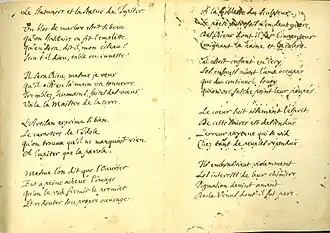 Le Statuaire et la Statue de Jupiter
Un bloc de marbre estoit si beau
Qu'un Statuaire en fit l'emplette.
Qu'en fera, dit-il, mon ciseau?
Sera-t-il Dieu, table ou cuvette?
Il sera Dieu, mesme je veux
Qu'il ait en sa main un tonnerre.
Tremblez, humains, faites des vœux
Voila le Maistre de la terre.
L'Artisan exprima si bien
Le caractere de l'Idole,
Qu'on trouva qu'il ne manquoit rien
A Jupiter que la parole.
Mesme l'on dit que l'Ouvrier
Eut à peine achevé l'image
Qu'on le vid fremir le premier
Et redouter son propre ouvrage.
A la foiblesse du Sculpteur
Le Poëte autrefois n'en dut guere,
Des Dieux dont il fut l'inventeur
Craignant la haine et la colere.
Il estoit enfant en cecy
Les enfants n'ont l'ame occupée
Que du continuel soucy
Qu'on ne fasche point leur poupée.
Le cœur suit aisément l'esprit
De cette source est descendue
L'erreur payenne qui se vid
Chez tant de peuples répandue
Ils embrassoient violemment
Les interests de leur chimere
Pigmalion devint amant
De la Venus dont il fut pere.